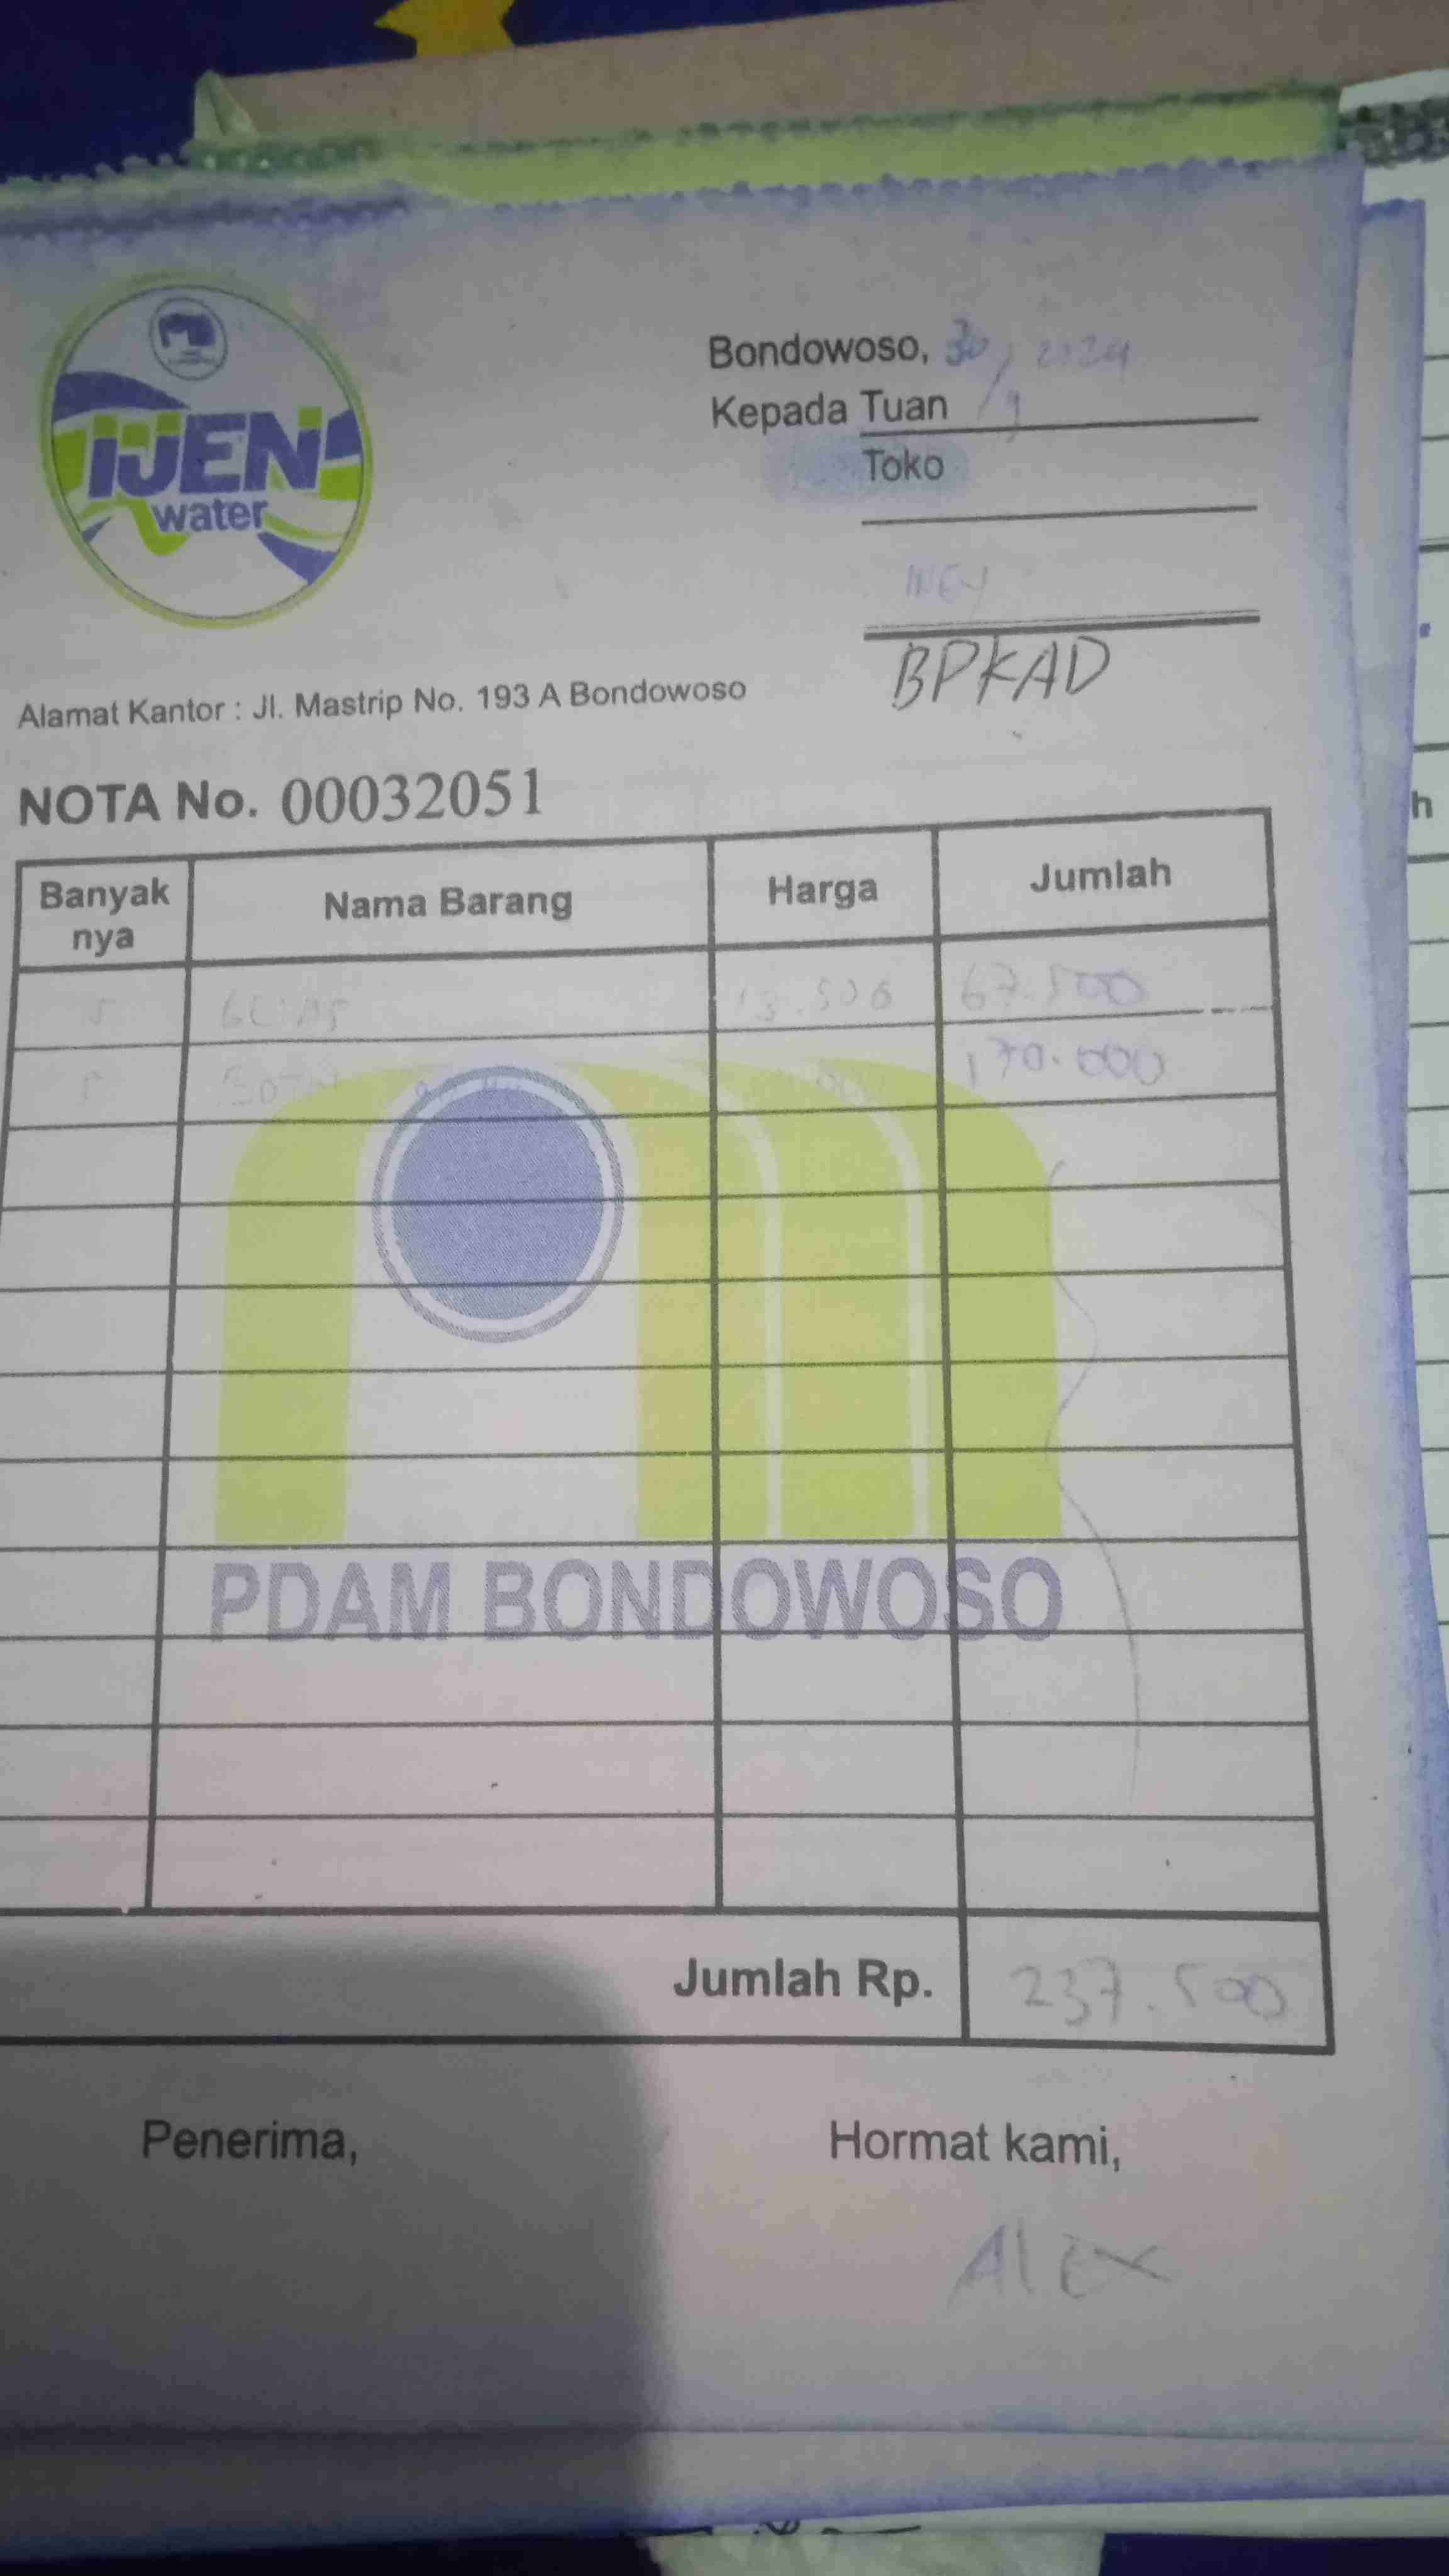 IJEN
water
Bondowoso, 30/9 2024
Kepada Tuan
Toko
BPKAD
Alamat Kantor : Jl. Mastrip No. 193 A Bondowoso
NOTA No. 00032051
Banyak nya Nama Barang Harga Jumlah
5 GELAS 13.500 67.500
5 170.000
PDAM BONDOWOSO
Jumlah Rp. 237.500
Penerima, Hormat kami,
Alex